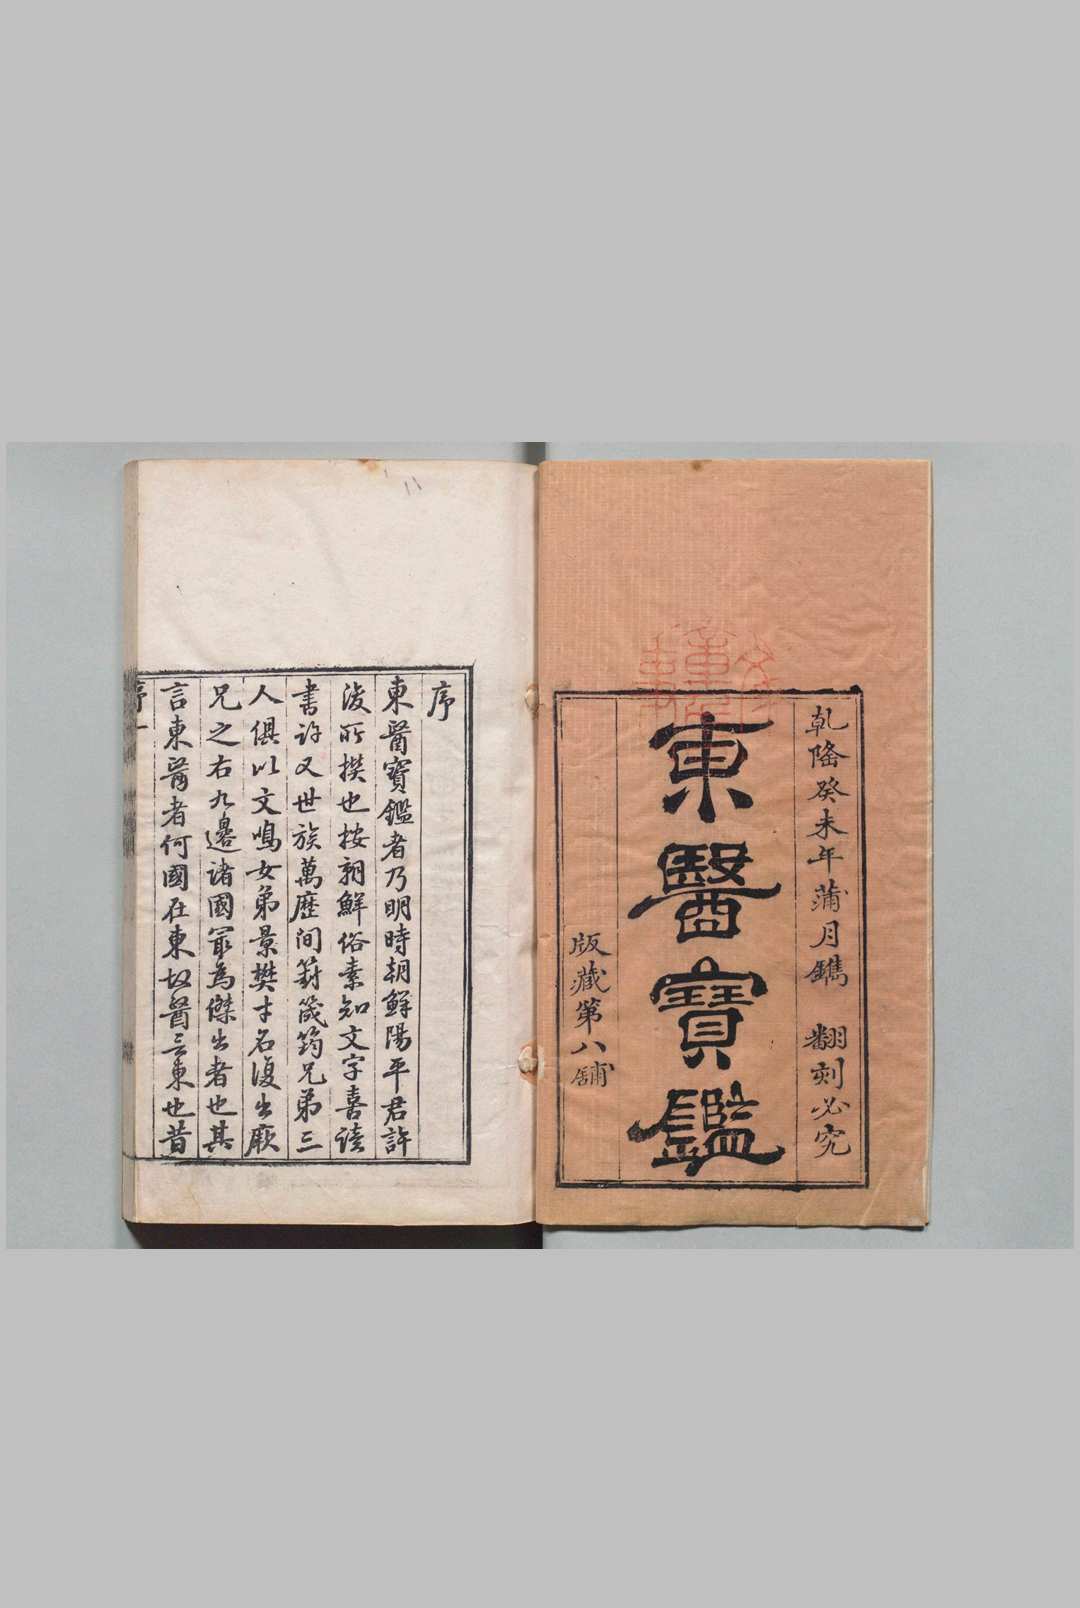 乾隆癸未年蒲月鐫　翻刻必究
東醫寶鑑
版藏第八舖
序
東醫寶鑑者乃明時朝鮮陽平君許
浚所撰也按朝鮮俗素知文字喜读
書許又世族萬歷间篈筬筠兄弟三
人俱以文鳴女弟景樊才名復出厥
兄之右九邊诸國冣為傑出者也其
言東醫者何國在東故醫言東也昔
序一